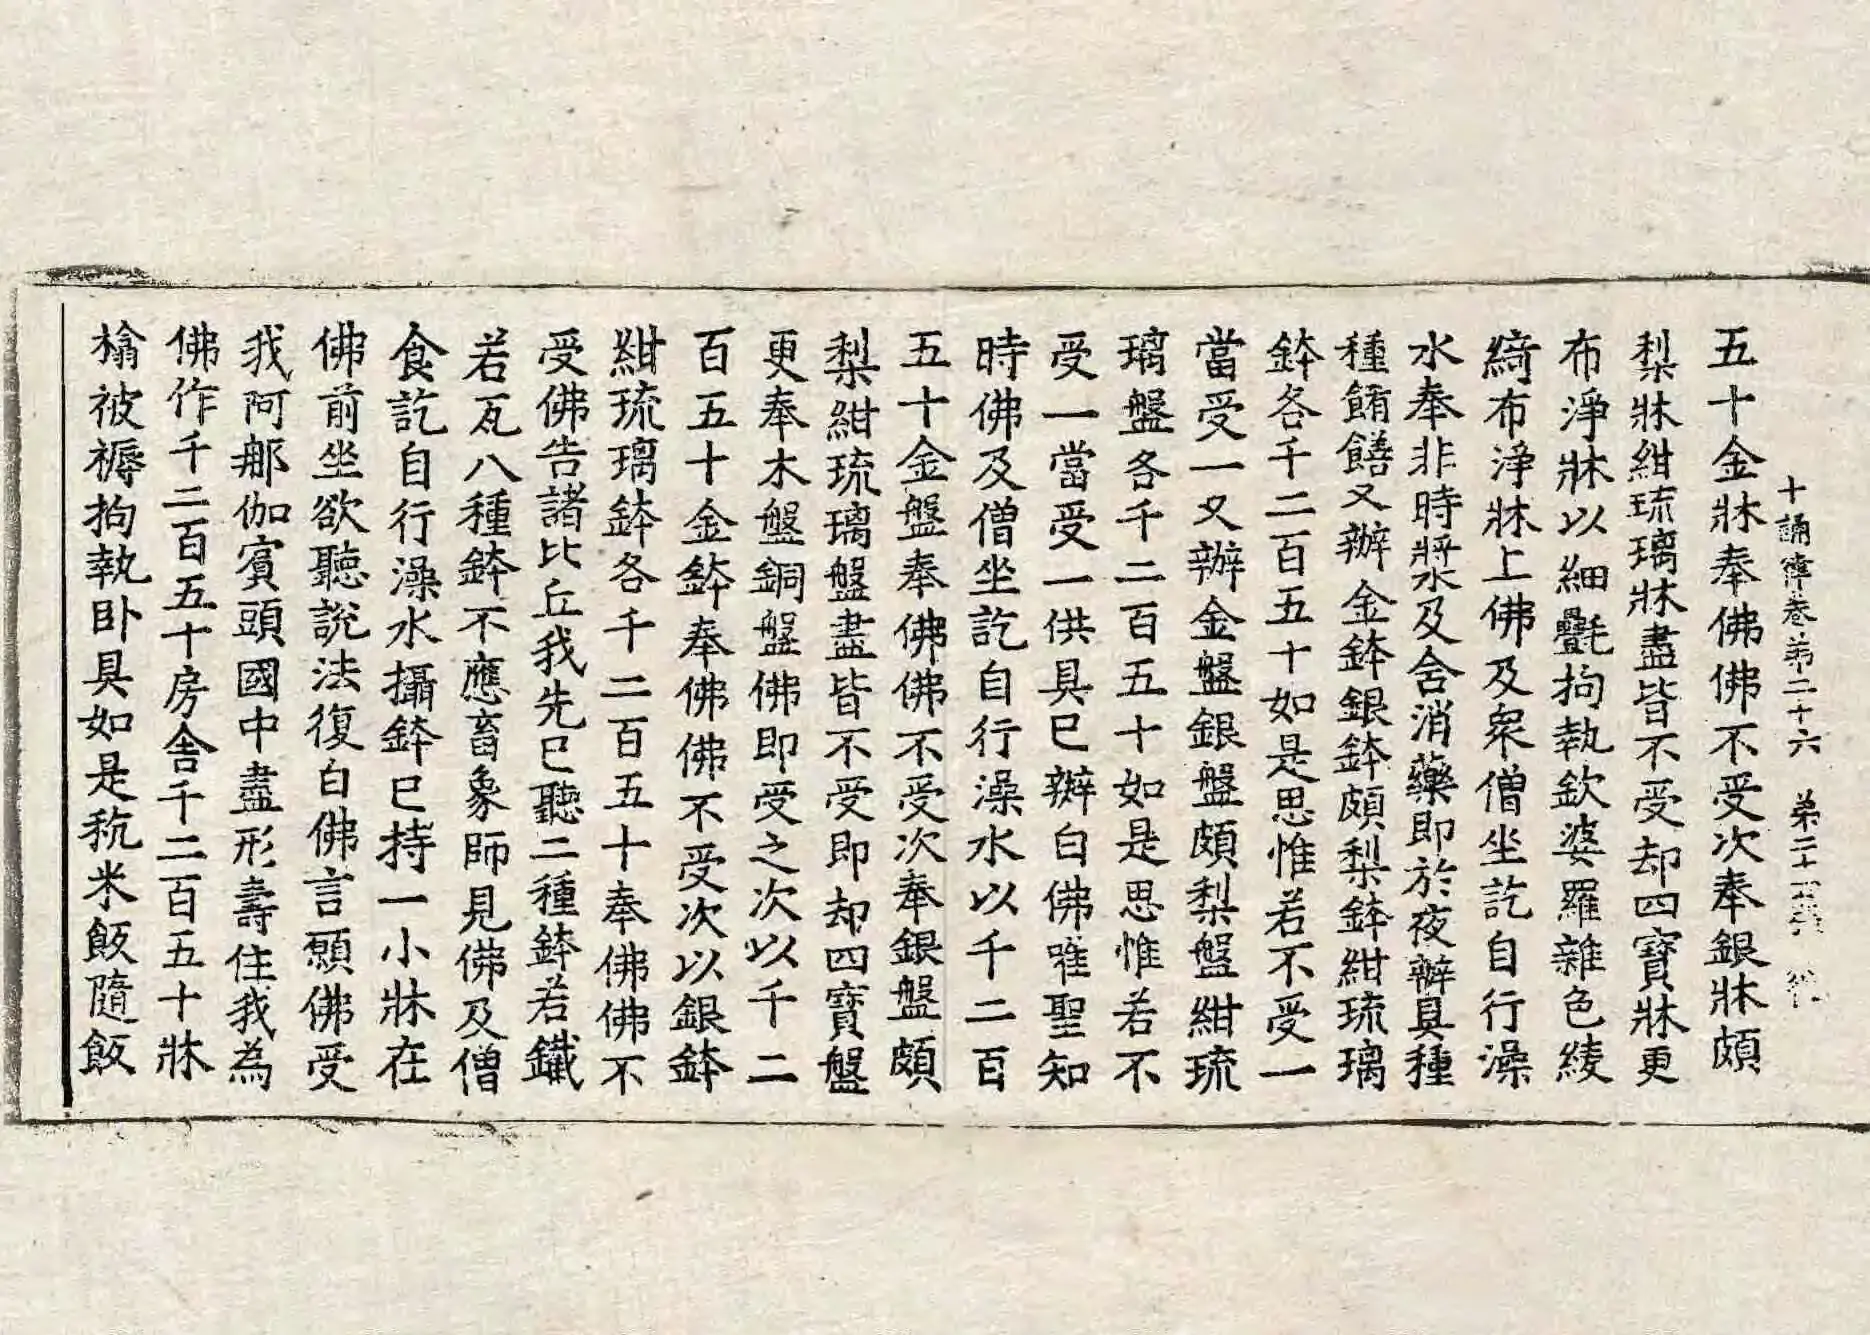 十誦律卷第二十六 第二十 張
五十金牀奉佛佛不受次奉銀牀頗
梨牀紺琉璃牀盡皆不受却四寶牀更
布淨牀以細㲲拘執欽婆羅雜色綾
綺布淨牀上佛及衆僧坐訖自行澡
水奉非時漿水及含消藥即於夜辦具種
種餚饍又辦金鉢銀鉢頗梨鉢紺琉璃
鉢各千二百五十如是思惟若不受一
當受一又辦金盤銀盤頗梨盤紺琉
璃盤各千二百五十如是思惟若不
受一當受一供具已辦白佛唯聖知
時佛及僧坐訖自行澡水以千二百
五十金盤奉佛佛不受次奉銀盤頗
梨紺琉璃盤盡皆不受即却四寶盤
更奉木盤銅盤佛即受之次以千二
百五十金鉢奉佛佛不受次以銀鉢
紺琉璃鉢各千二百五十奉佛佛不
受佛告諸比丘我先已聽二種鉢若鐵
若瓦八種鉢不應畜象師見佛及僧
食訖自行澡水攝鉢已持一小牀在
佛前坐欲聽説法復白佛言願佛受
我阿那伽賓頭國中盡形壽住我為
佛作千二百五十房舍千二百五十牀
榻被褥拘執卧具如是秔米飯隨飯